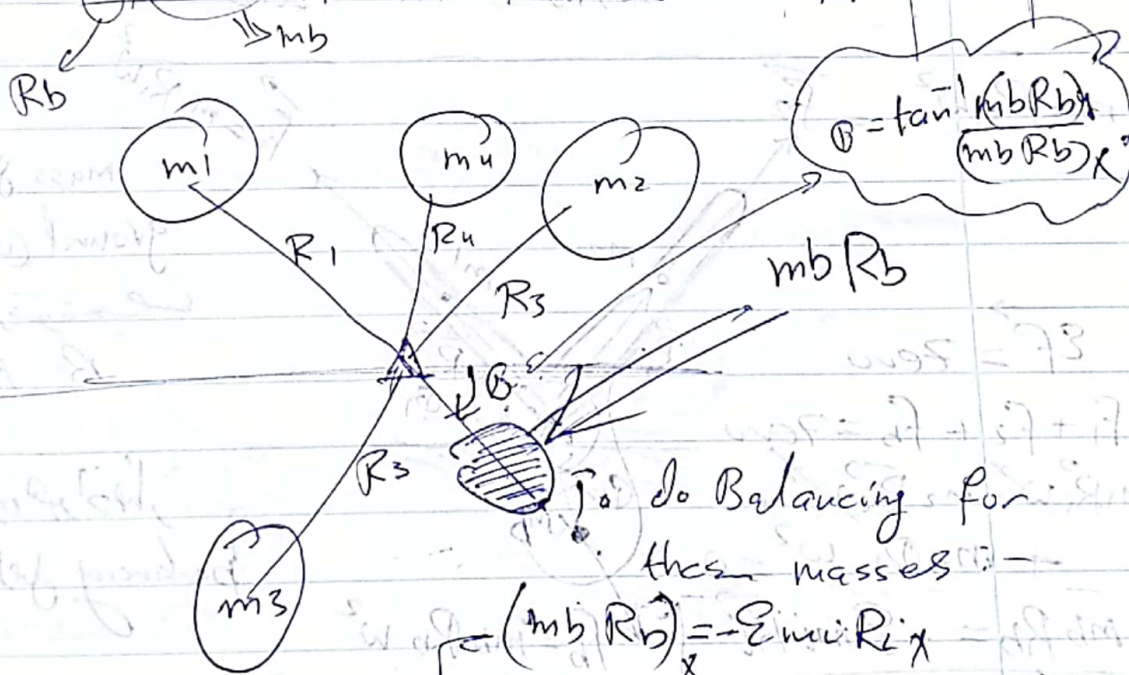 mb
Rb
m1
m4
m2
θ = tan⁻¹ (mbRb)y / (mbRb)x
R1
R4
R3
mbRb
θ
R3
To do Balancing for
these masses :-
m3
(mb Rb)x = -Σmi Rix